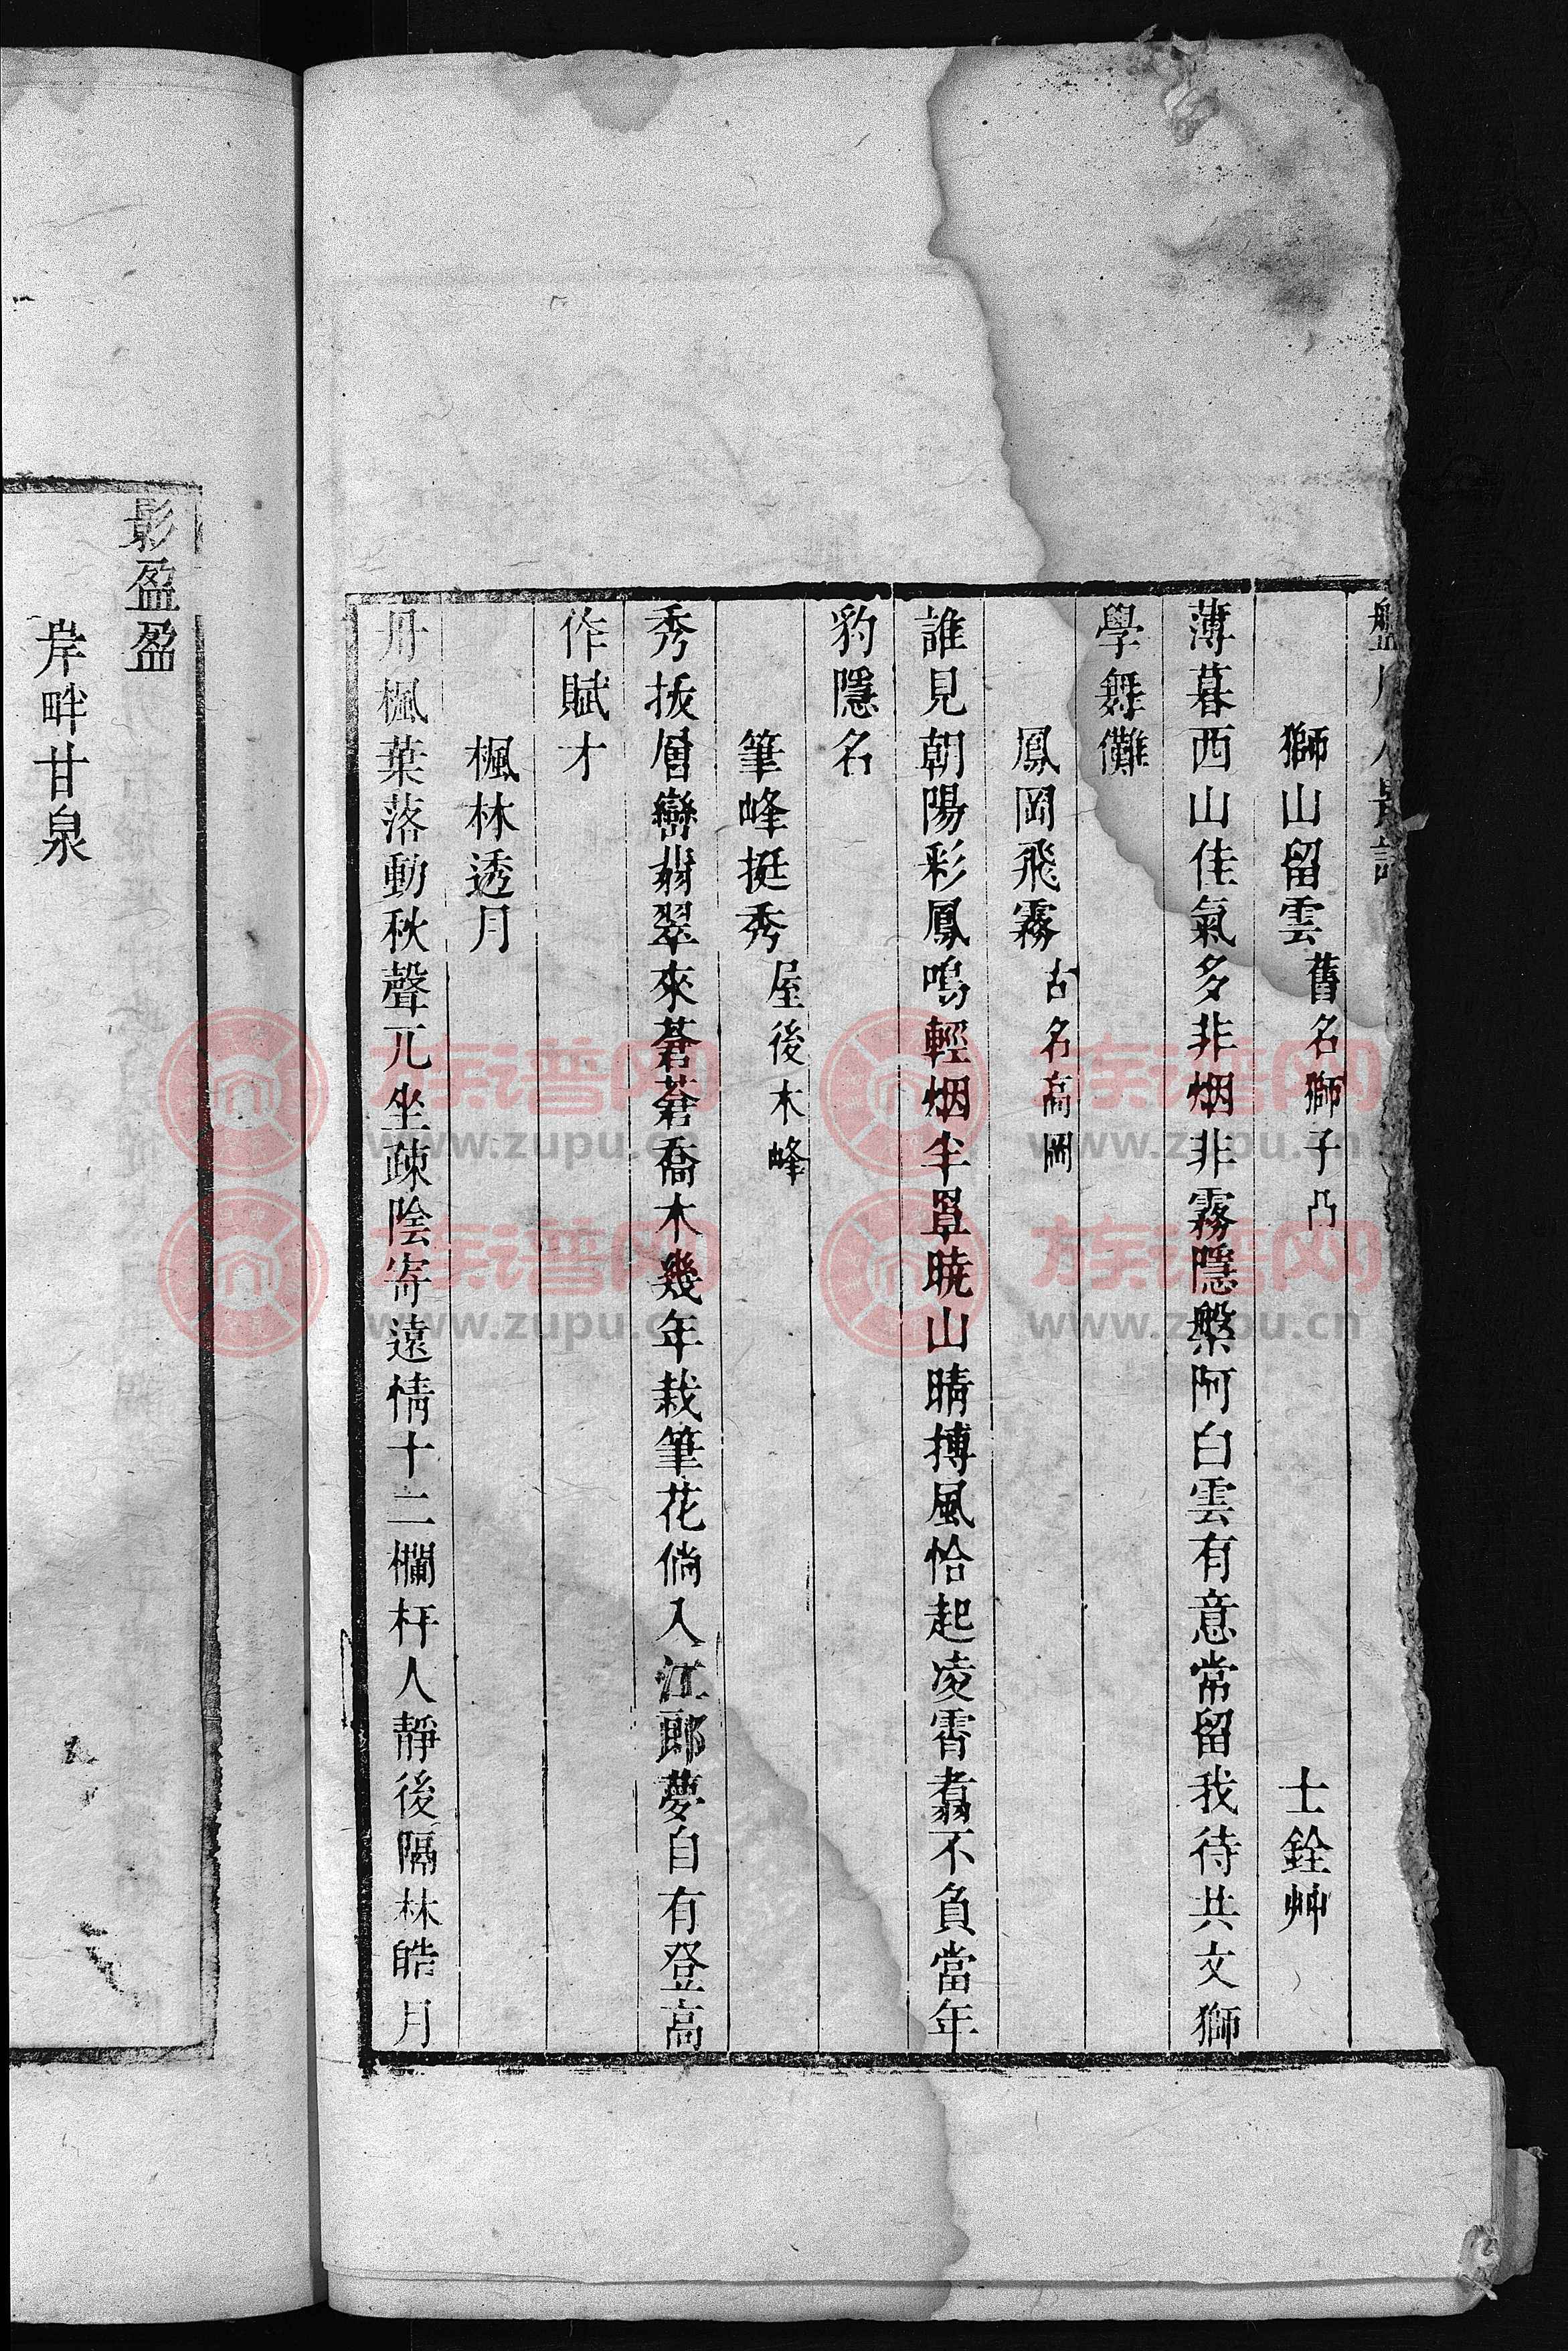 獅山留雲 舊名獅子凸 士銓艸
薄暮西山佳氣多非烟非霧隱槃阿白雲有意常留我待共文獅
學舞儺
鳳岡飛霧 古名高岡
誰見朝陽彩鳳鳴輕烟半罩曉山晴搏風恰起凌霄翥不負當年
豹隱名
筆峰挺秀 屋後木峰
秀拔層巒翡翠來蒼蒼喬木幾年栽筆花倘入江郎夢自有登高
作賦才
楓林透月
丹楓葉落動秋聲兀坐疎陰寄遠情十二欄杆人靜後隔林皓月
影盈盈
岸畔甘泉
族谱网
www.zupu.cn
族谱网
www.zupu.cn
族谱网
www.zupu.cn
族谱网
www.zupu.cn